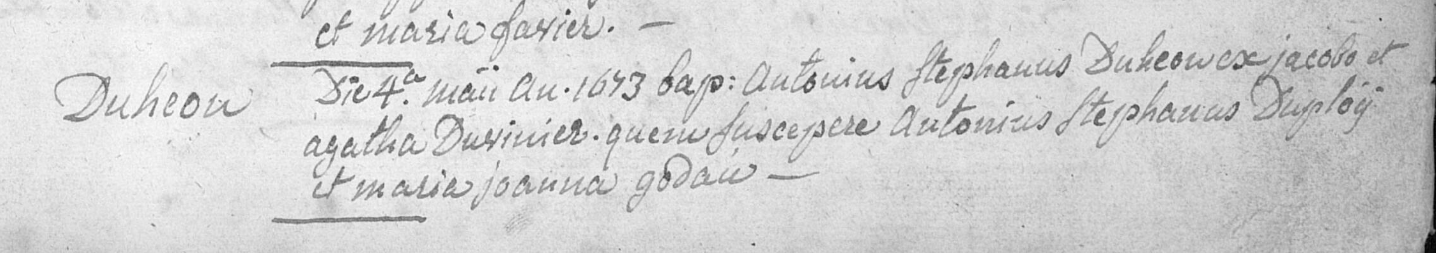 et maria favier. —
Duheon
Die 4.a maii An. 1673 bap: Antonius Stephanus Duheon ex jacobo et
agatha Duvinier. quem suscepere Antonius Stephanus Duploÿ
et maria joanna godaii —